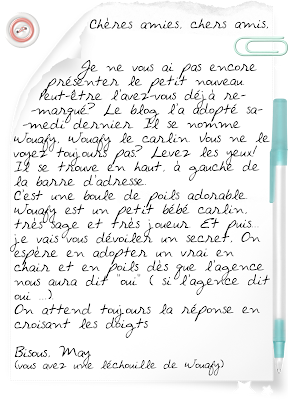 Chères amies, chers amis,
Je ne vous ai pas encore
présenter le petit nouveau
Peut-être l'avez-vous déjà re-
-marqué? Le blog l'a adopté sa-
-medi dernier Il se nomme
Wouafy, Wouafy le carlin Vous ne le
voyez toujours pas? Levez les yeux!
Il se trouve en haut, à gauche de
la barre d'adresse.
C'est une boule de poils adorable
Wouafy est un petit bébé carlin,
très sage et très joueur Et puis...
je vais vous dévoiler un secret, On
espère en adopter un vrai en
chair et en poils dès que l'agence
nous aura dit "oui" ( si l'agence dit
oui ...)
On attend toujours la réponse en
croisant les doigts
Bisous, May
(vous avez une léchouille de Wouafy)